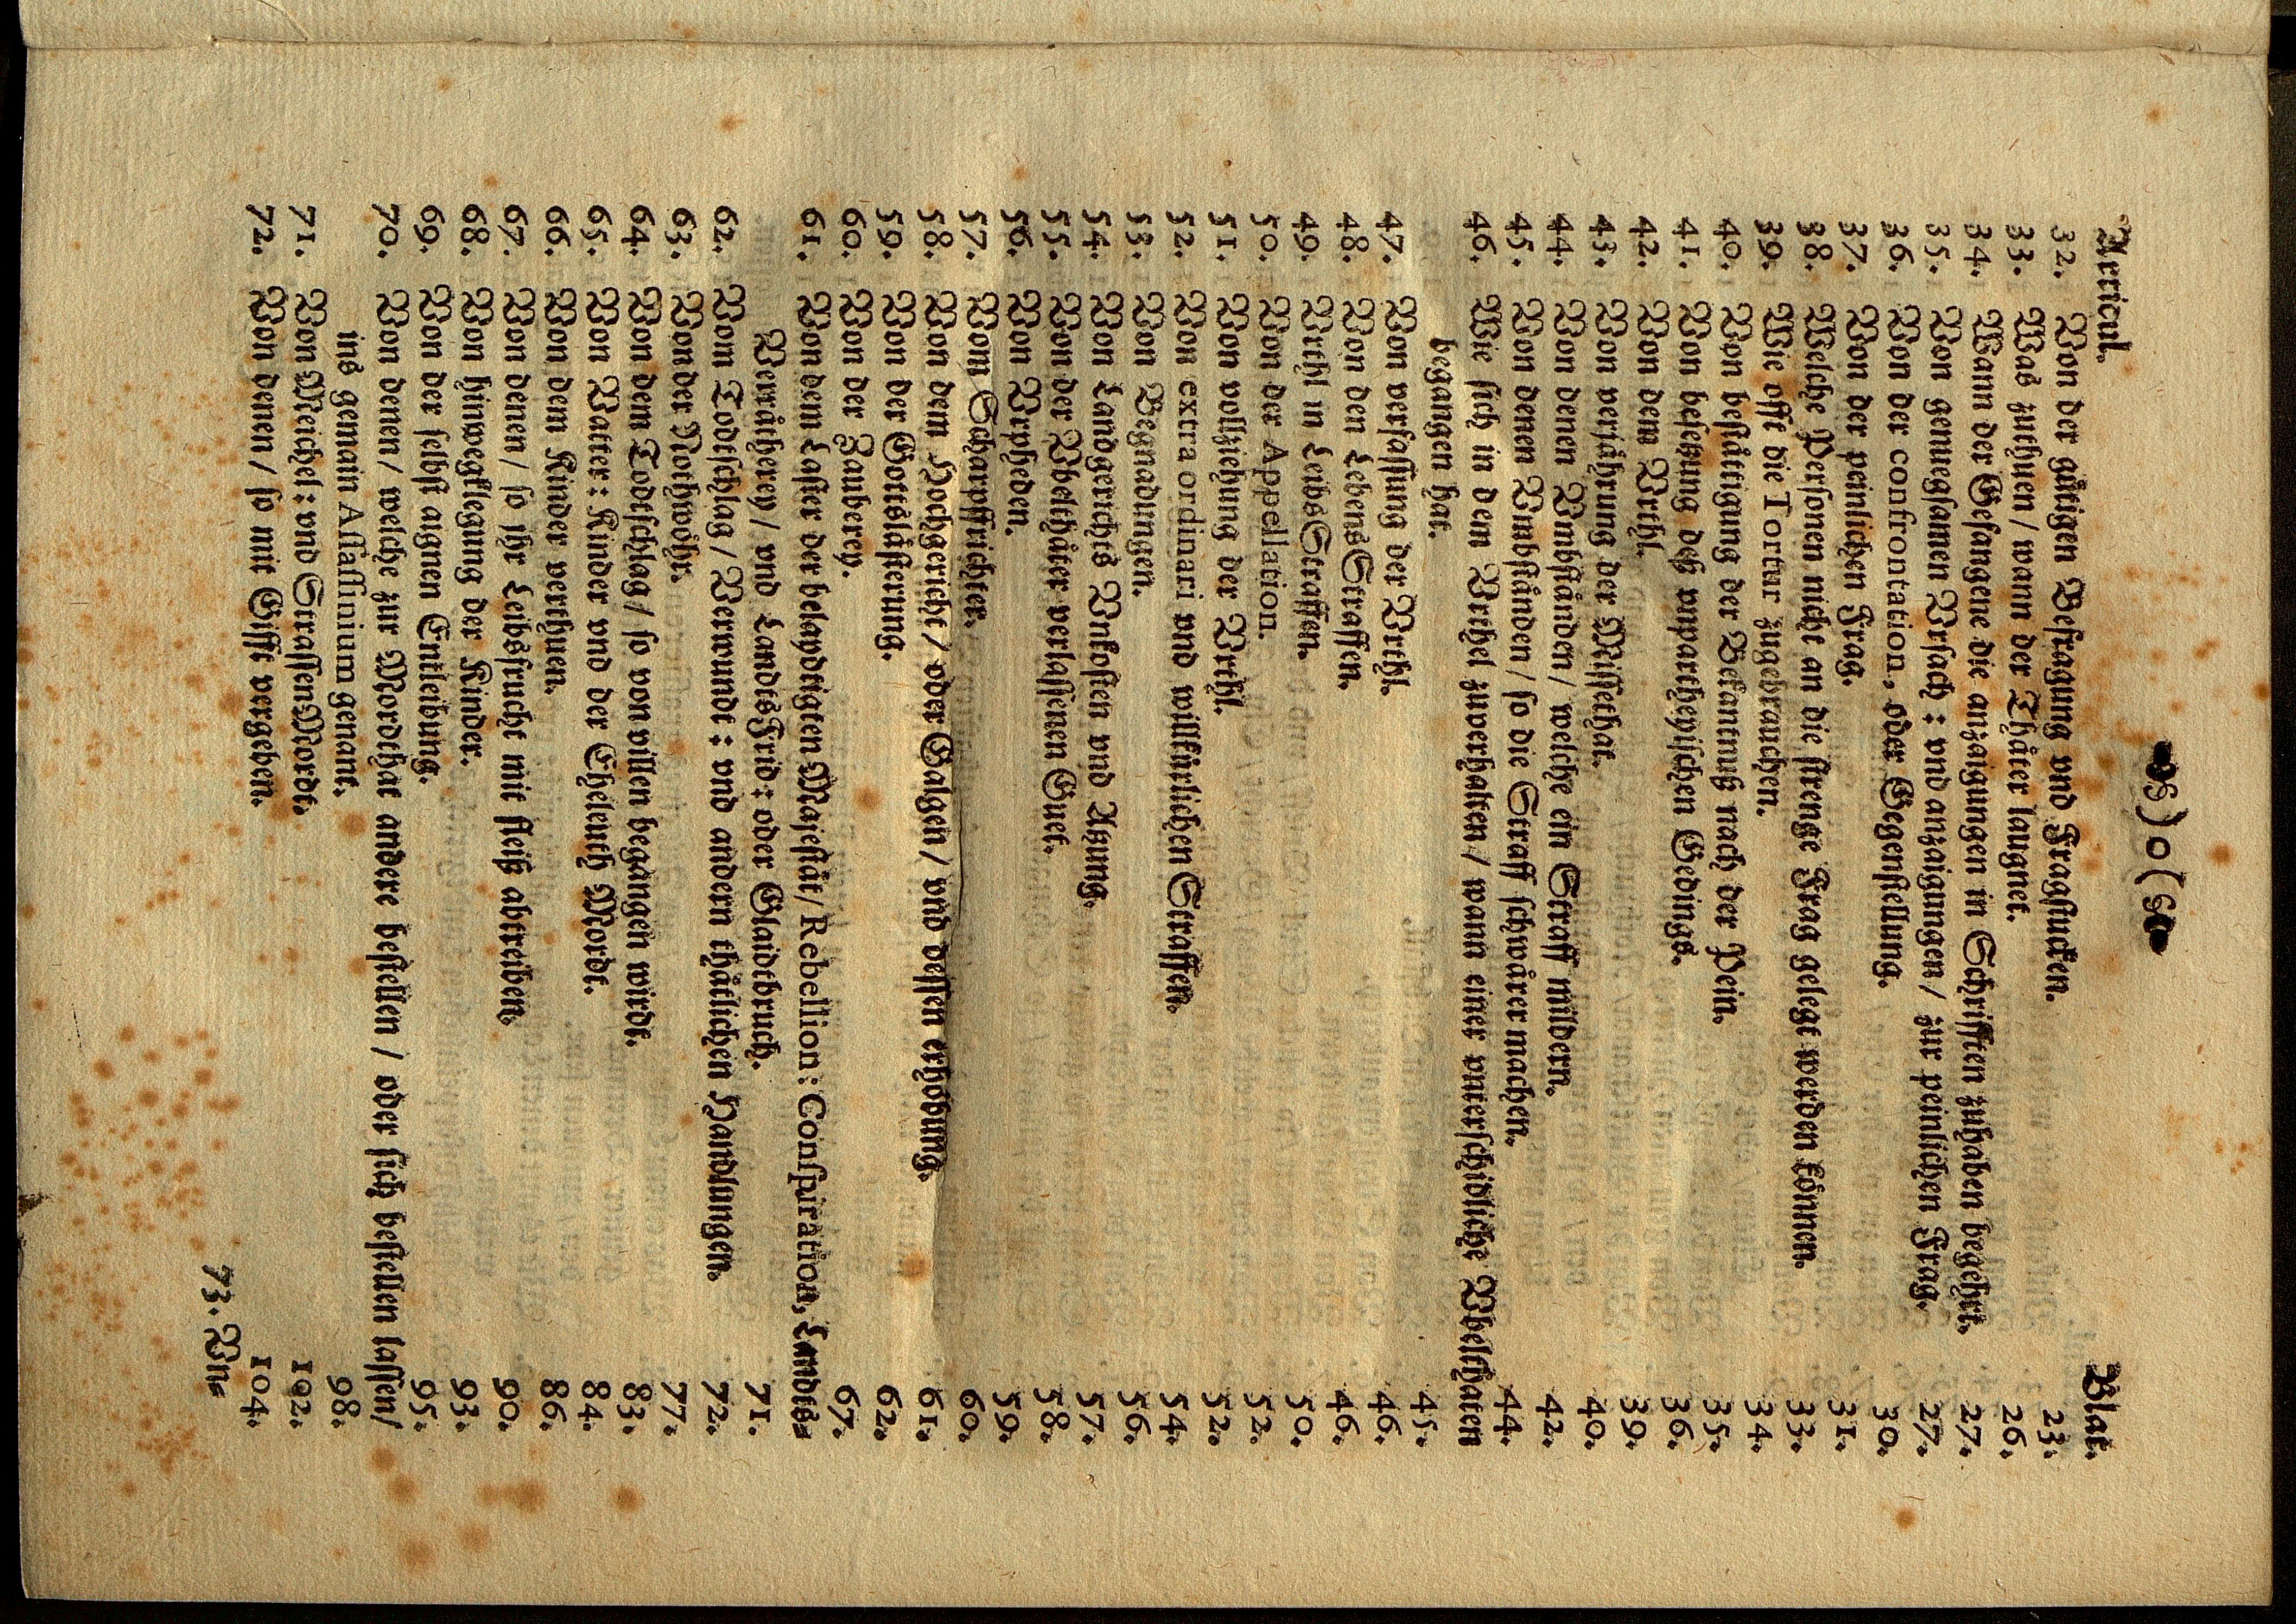 )o(
Articul. Blat.
32. Von der gütigen Befragung vnd Fragstucken. 23.
33. Was zuthuen / wann der Thäter laugnet. 26.
34. Wann der Gefangene die anzaigungen in Schrifften zuhaben begehrt. 27.
35. Von genuegsamen Vrsach : vnd anzaigungen / zur peinlichen Frag. 27.
36. Von der confrontation, oder Gegenstellung. 30.
37. Von der peinlichen Frag. 31.
38. Welche Personen nicht an die strenge Frag gelegt werden können. 33.
39. Wie offt die Tortur zugebrauchen. 34.
40. Von bestättigung der Bekantnuß nach der Pein. 35.
41. Von besetzung deß vnpartheyischen Gedings. 36.
42. Von dem Vrthl. 39.
43. Von verjährung der Missethat. 40.
44. Von denen Vmbständen / welche ein Straff mildern. 42.
45. Von denen Vmbständen / so die Straff schwärer machen. 44.
46. Wie sich in dem Vrthel zuverhalten / wann einer vnterschidliche Vbelthaten
begangen hat. 45.
47. Von verfassung der Vrthl. 46.
48. Von den LebensStraffen. 46.
49. Vrthl in LeibsStraffen. 50.
50. Von der Appellation. 52.
51. Von vollziehung der Vrthl. 52.
52. Von extraordinari vnd willkürlichen Straffen. 54.
53. Von Begnadungen. 56.
54. Von Landgerichts Vnkosten vnd Atzung. 57.
55. Von der Vbelthäter verlassenen Guet. 58.
56. Von Vrpheden. 59.
57. Vom Scharpffrichter. 60.
58. Von dem Hochgericht / oder Galgen / vnd dessen erhöbung. 61.
59. Von der Gottslästerung. 62.
60. Von der Zauberey. 67.
61. Von dem Laster der belaydigten Majestät / Rebellion : Conspiration, Landts-
Verrätherey / vnd LandtsFrid : oder Glaidtbruch. 71.
62. Vom Todtschlag / Verwundt : vnd andern thätlichen Handlungen. 72.
63. Von der Nothwöhr. 77.
64. Von dem Todtschlag / so von villen begangen wirdt. 83.
65. Von Vatter : Kinder vnd der Eheleuth Mordt. 84.
66. Von dem Kinder verthuen. 86.
67. Von denen / so ihr Leibsfrucht mit fleiß abtreiben. 90.
68. Von hinweglegung der Kinder. 93.
69. Von der selbst aignen Entleibung. 95.
70. Von denen / welche zur Mordthat andere bestellen / oder sich bestellen lassen /
ins gemain Assassinium genant. 98.
71. Von Meichel : vnd StrassenMordt. 102.
72. Von denen / so mit Gifft vergeben. 104.
73. Vn-